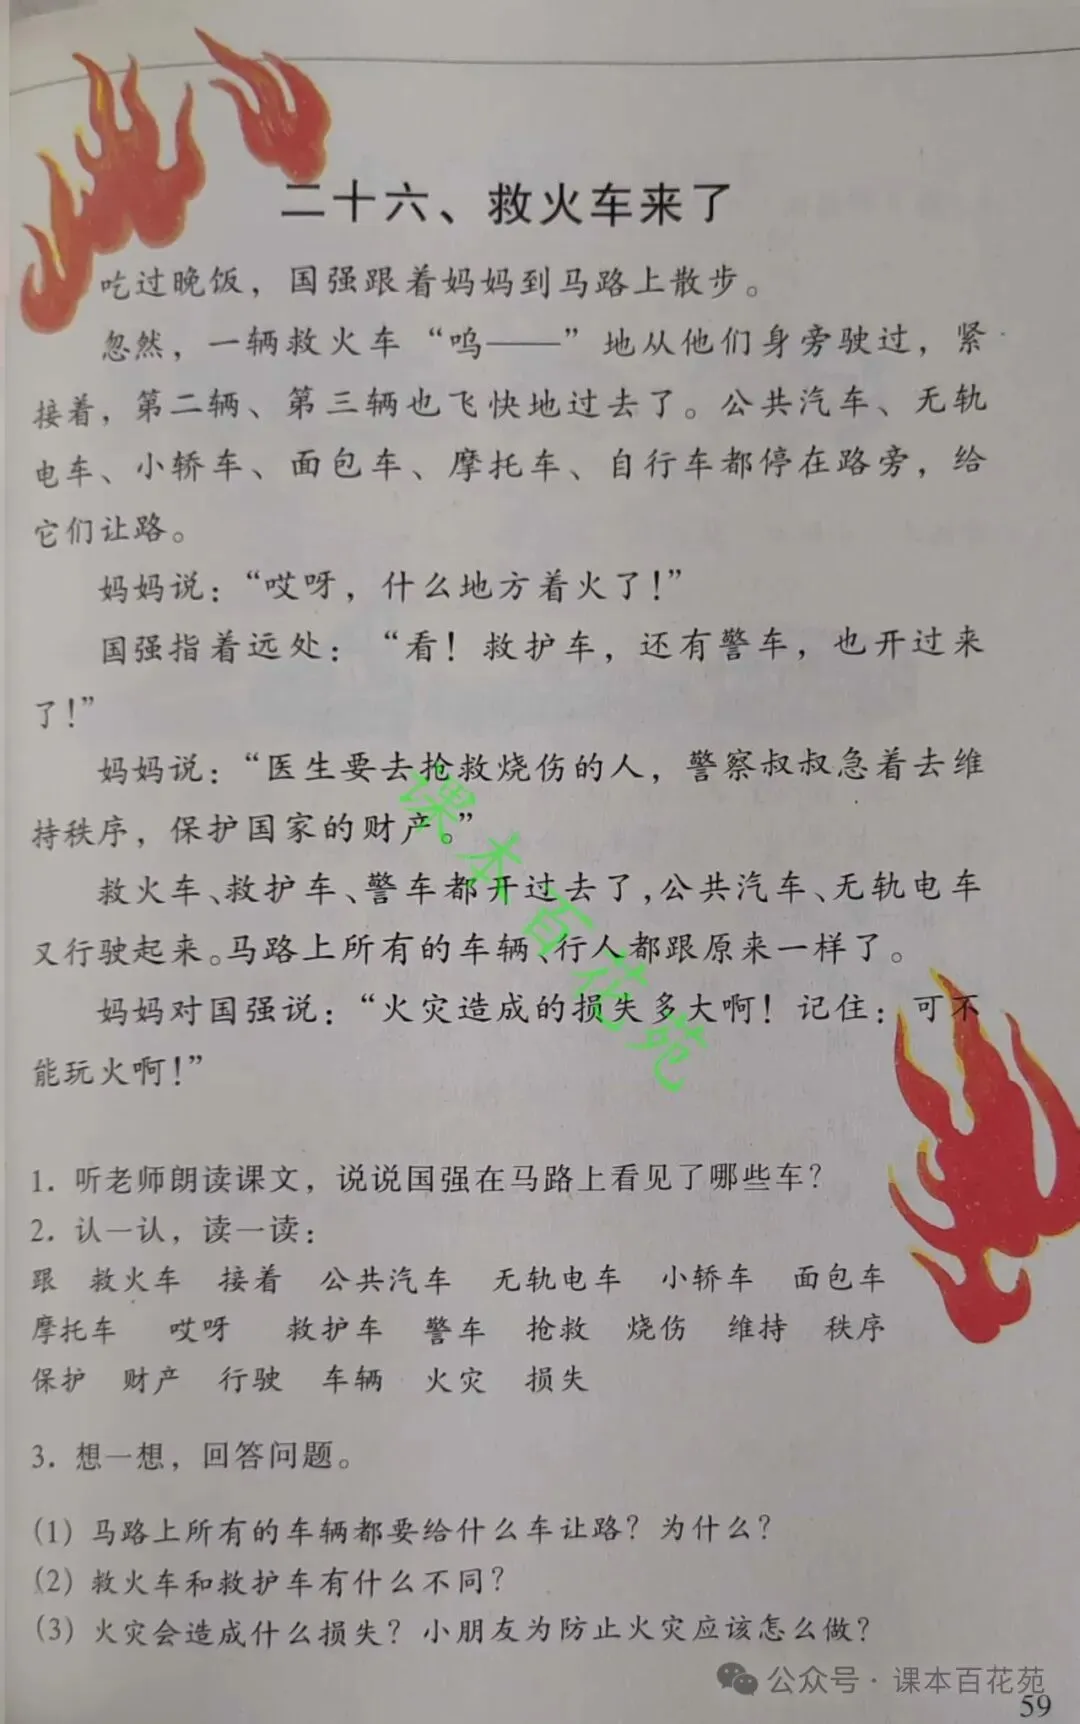 二十六、救火车来了
吃过晚饭，国强跟着妈妈到马路上散步。
忽然，一辆救火车“呜——”地从他们身旁驶过，紧
接着，第二辆、第三辆也飞快地过去了。公共汽车、无轨
电车、小轿车、面包车、摩托车、自行车都停在路旁，给
它们让路。
妈妈说：“哎呀，什么地方着火了！”
国强指着远处：“看！救护车，还有警车，也开过来
了！”
妈妈说：“医生要去抢救烧伤的人，警察叔叔急着去维
持秩序，保护国家的财产。”
救火车、救护车、警车都开过去了，公共汽车、无轨电车
又行驶起来。马路上所有的车辆、行人都跟原来一样了。
妈妈对国强说：“火灾造成的损失多大啊！记住：可不
能玩火啊！”
课本百花苑
1. 听老师朗读课文，说说国强在马路上看见了哪些车？
2. 认一认，读一读：
跟 救火车 接着 公共汽车 无轨电车 小轿车 面包车
摩托车 哎呀 救护车 警车 抢救 烧伤 维持 秩序
保护 财产 行驶 车辆 火灾 损失
3. 想一想，回答问题。
(1) 马路上所有的车辆都要给什么车让路？为什么？
(2) 救火车和救护车有什么不同？
(3) 火灾会造成什么损失？小朋友为防止火灾应该怎么做？
公众号·课本百花苑
59